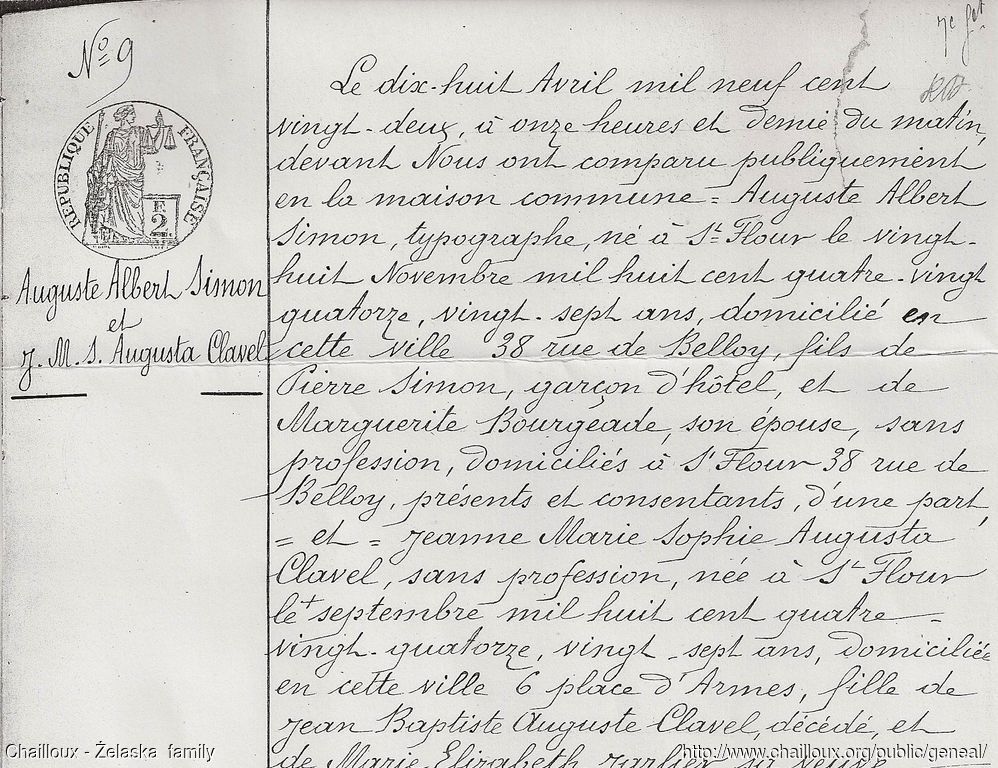 N° 9
RÉPUBLIQUE FRANÇAISE
2
Auguste Albert Simon
et
J. M. S. Augusta Clavel
Le dix-huit Avril mil neuf cent
vingt-deux, à onze heures et demie du matin,
devant Nous ont comparu publiquement
en la maison commune = Auguste Albert
Simon, typographe, né à St Flour le vingt-
huit Novembre mil huit cent quatre-vingt
quatorze, vingt-sept ans, domicilié en
cette ville 38 rue de Belloy, fils de
Pierre Simon, garçon d'hôtel, et de
Marguerite Bourgeade, son épouse, sans
profession, domiciliés à St Flour 38 rue de
Belloy, présents et consentants, d'une part,
= et = Jeanne Marie Sophie Augusta
Clavel, sans profession, née à St Flour
le septembre mil huit cent quatre-
vingt-quatorze, vingt-sept ans, domiciliée
en cette ville 6 place d'Armes, fille de
Jean Baptiste Auguste Clavel, décédé, et
de Marie Elizabeth sa veuve
Chailloux - Želaska family
http://www.chailloux.org/public/geneal/